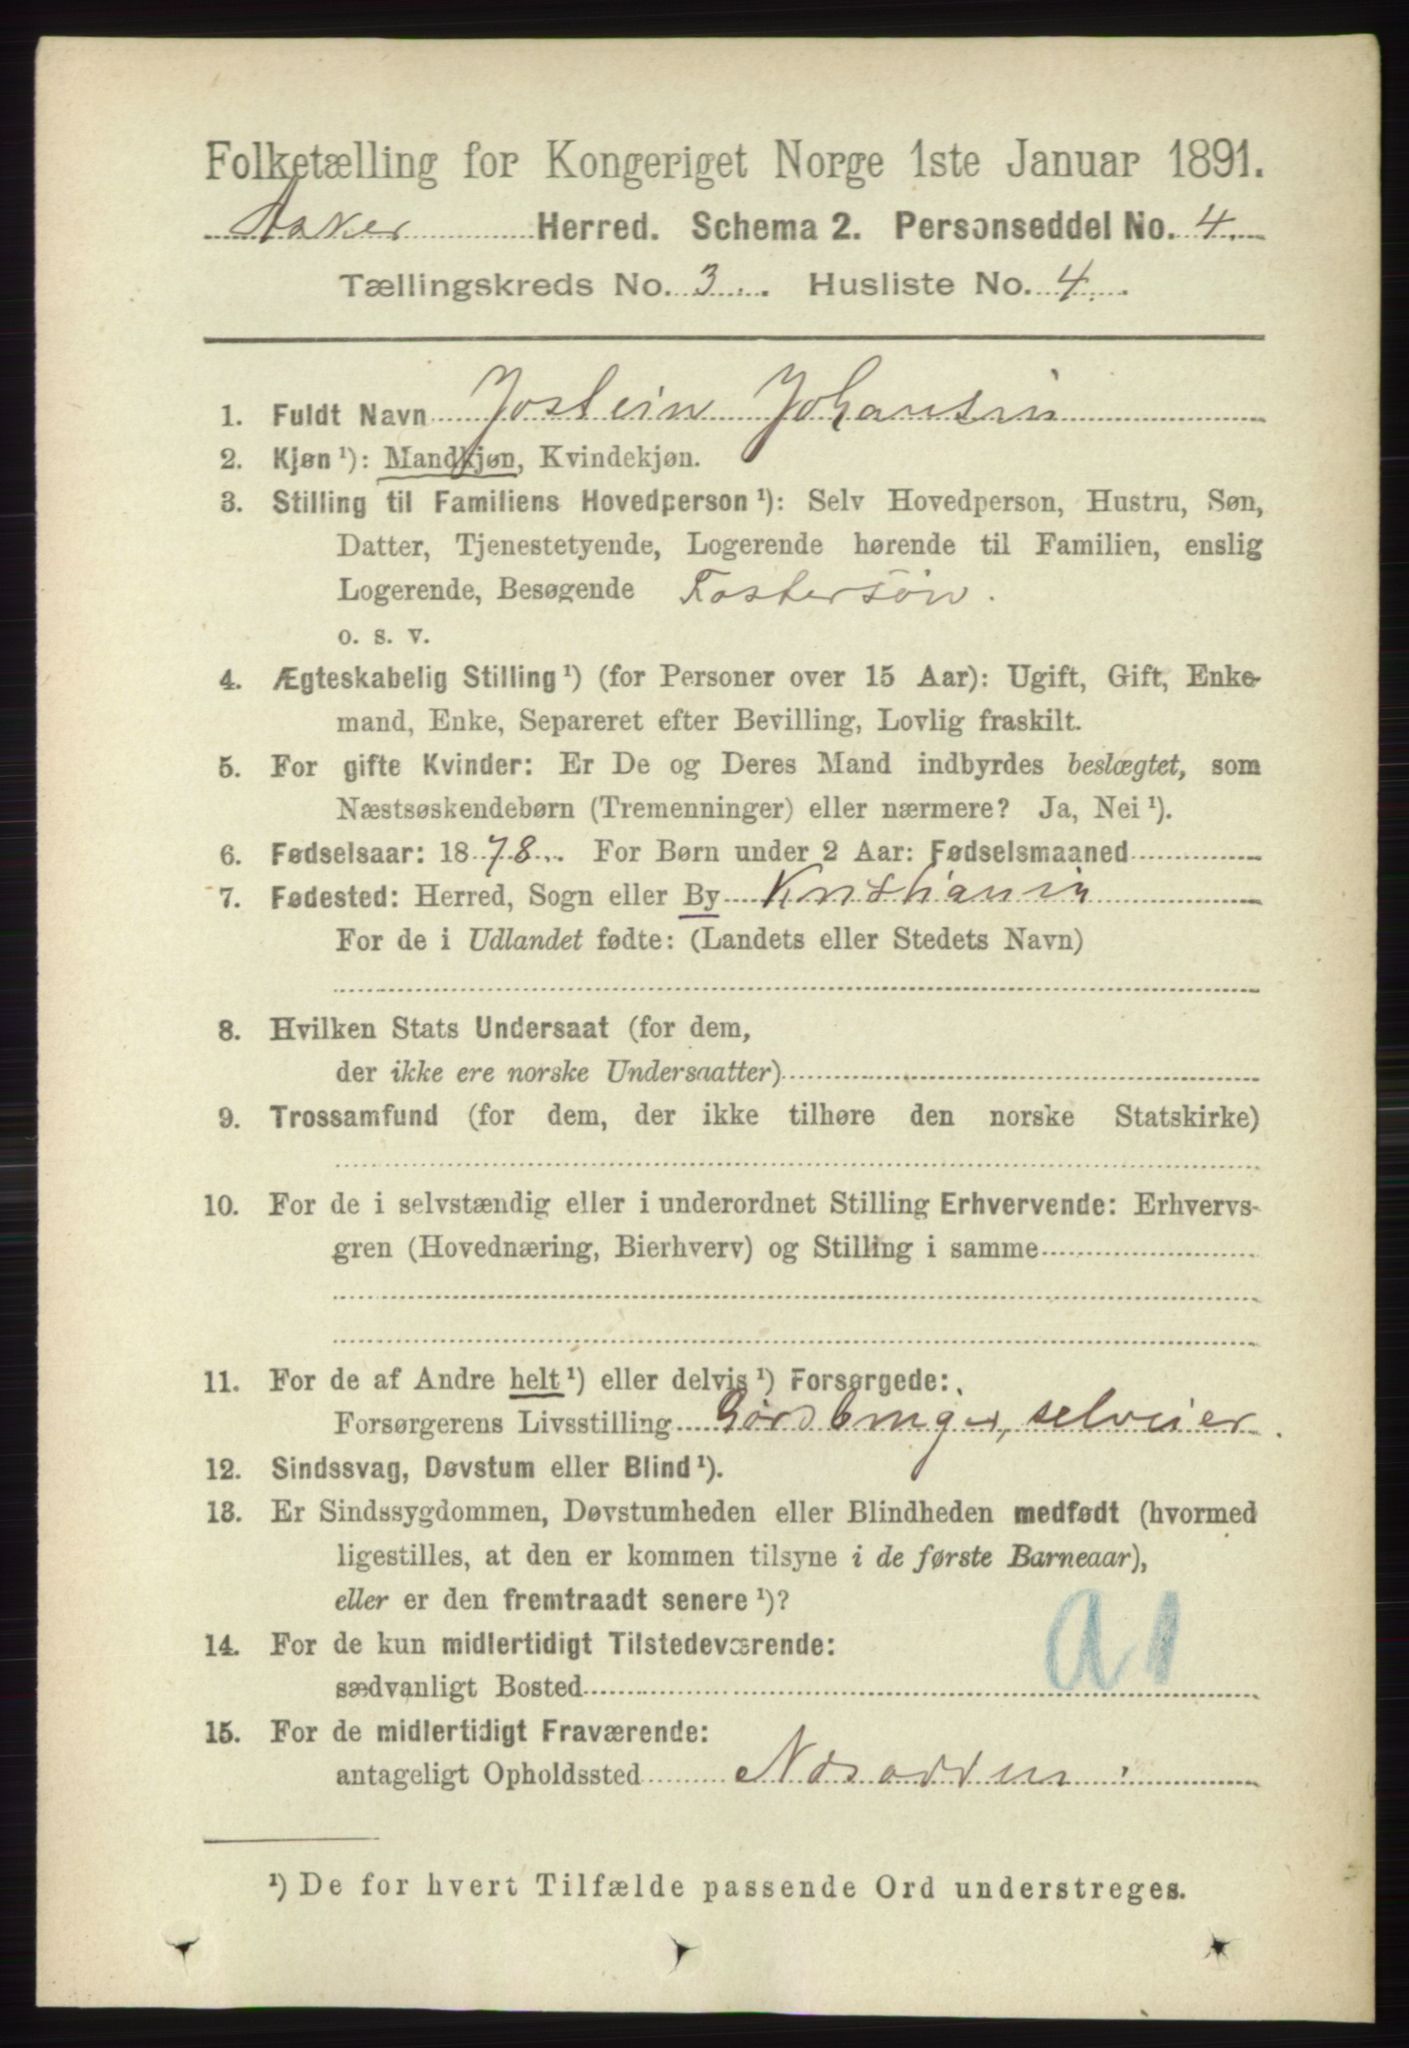 Folketælling for Kongeriget Norge 1ste Januar 1891.
Aaker Herred. Schema 2. Personseddel No. 4.
Tællingskreds No. 3. Husliste No. 4.
1. Fuldt Navn Jostein Johansin
2. Kjøn ¹): Mandkjøn, Kvindekjøn.
3. Stilling til Familiens Hovedperson ¹): Selv Hovedperson, Hustru, Søn,
Datter, Tjenestetyende, Logerende hørende til Familien, enslig
Logerende, Besøgende Fostersøn.
o. s. v.
4. Ægteskabelig Stilling ¹) (for Personer over 15 Aar): Ugift, Gift, Enke-
mand, Enke, Separeret efter Bevilling, Lovlig fraskilt.
5. For gifte Kvinder: Er De og Deres Mand indbyrdes beslægtet, som
Næstsøskendebørn (Tremenninger) eller nærmere? Ja, Nei ¹).
6. Fødselsaar: 1878. For Børn under 2 Aar: Fødselsmaaned
7. Fødested: Herred, Sogn eller By Kristiania
For de i Udlandet fødte: (Landets eller Stedets Navn)
8. Hvilken Stats Undersaat (for dem,
der ikke ere norske Undersaatter)
9. Trossamfund (for dem, der ikke tilhøre den norske Statskirke)
10. For de i selvstændig eller i underordnet Stilling Erhvervende: Erhvervs-
gren (Hovednæring, Bierhverv) og Stilling i samme
11. For de af Andre helt ¹) eller delvis ¹) Forsørgede:
Forsørgerens Livsstilling Gårdbruger, selveier.
12. Sindssvag, Døvstum eller Blind ¹).
13. Er Sindssygdommen, Døvstumheden eller Blindheden medfødt (hvormed
ligestilles, at den er kommen tilsyne i de første Barneaar),
eller er den fremtraadt senere ¹)?
a1
14. For de kun midlertidigt Tilstedeværende:
sædvanligt Bosted
15. For de midlertidigt Fraværende:
antageligt Opholdssted Næsodden
¹) De for hvert Tilfælde passende Ord understreges.